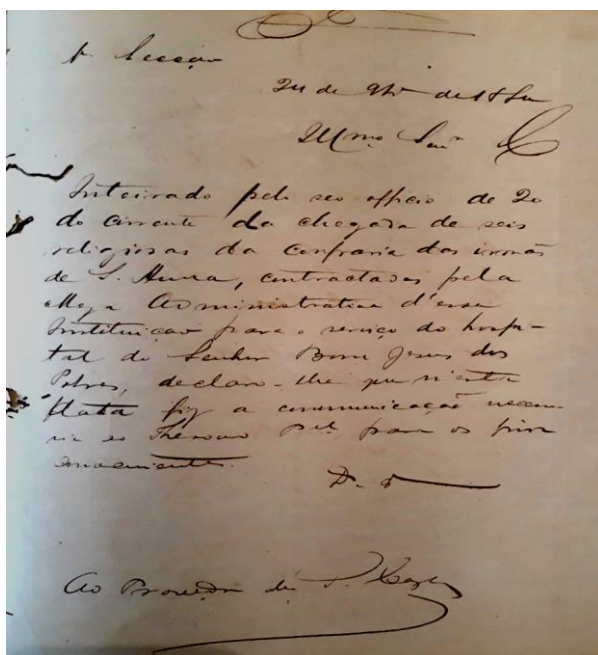 Secção
24 de 9br de
Illmo Snr
Inteirado pelo seo officio de 20
do corrente da chegada de seis
religiosas da confraria das irmãs
de S. Anna, contractadas pela
Meza Administrativa d'essa
Instituição para o serviço do hospi-
tal do Senhor Bom Jesus dos
Pobres, declaro-lhe que n'esta
data fiz a communicação neces-
ria ao Thesouro para os fins
convenientes.
D. G.
Ao Provedor da S. Caza